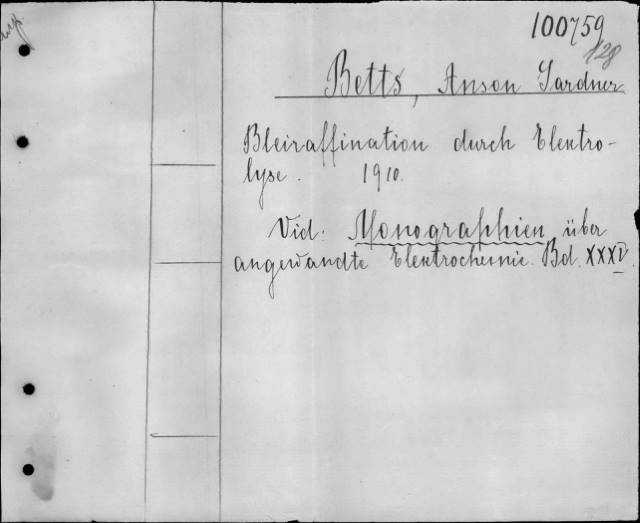 100759
128
Betts, Anson Gardner
Bleiraffination durch Elektro-
lyse. 1910.
Vid: Monographien über
angewandte Elektrochemie. Bd. XXXV.